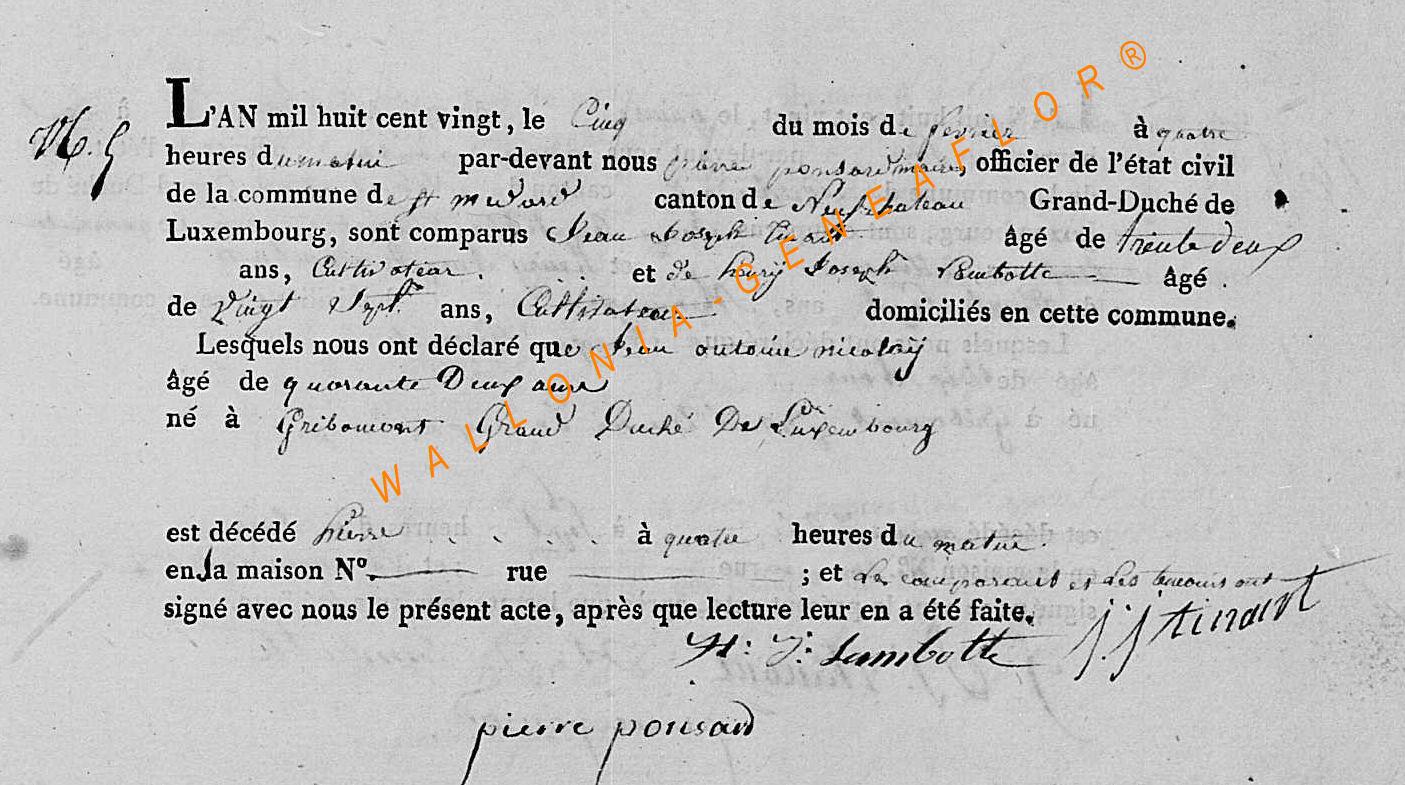 L'AN mil huit cent vingt, le Cinq du mois de fevrier à quatre
heures du matin par-devant nous pierre ponsard maire, officier de l'état civil
de la commune de st medard canton de Neufchateau Grand-Duché de
Luxembourg, sont comparus Jean Joseph âgé de trente deux
ans, Cultivateur. et de henry Joseph Lambotte âgé
de Vingt Sept ans, Cultivateur domiciliés en cette commune.
Lesquels nous ont déclaré que Jean antoine nicolay
âgé de quarante Deux ans
né à Gribomont Grand Duché De Luxembourg
est décédé hierre à quatre heures du matin.
en la maison N°. rue ; et Le comparant et les temoins ont
signé avec nous le présent acte, après que lecture leur en a été faite.
H: J: Lambotte J. J. tinant
pierre ponsard
WALLONIA-GENEAFLOR®